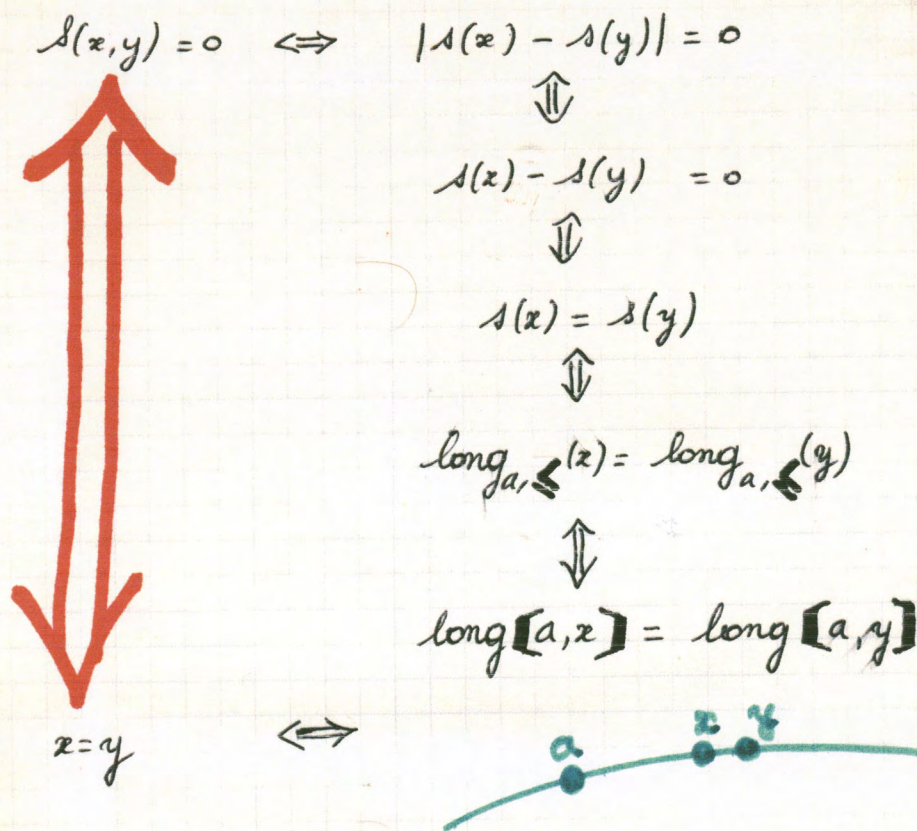 s(x,y) = 0 ⇔ |s(x) - s(y)| = 0
⇕
s(x) - s(y) = 0
⇕
s(x) = s(y)
⇕
long_{a,≤}(x) = long_{a,≤}(y)
⇕
long[a,x] = long[a,y]
x = y ⇔
a x y